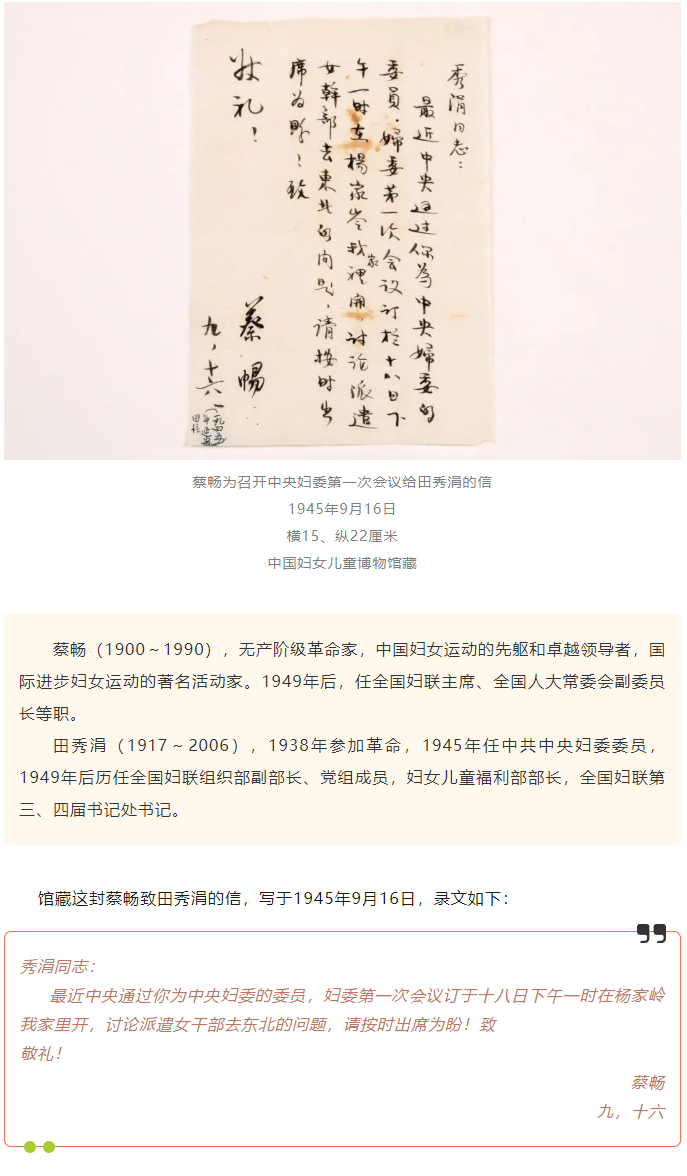 秀涓同志：
最近中央通过你為中央婦委的
委員，婦委第一次会议订於十八日下
午一时在楊家岺我家裡開，讨论派遣
女幹部去東北的问题，请按时出
席为盼！致
敬礼！
蔡暢
九，十六
（一九四五
年延安
田信）
蔡畅为召开中央妇委第一次会议给田秀涓的信
1945年9月16日
横15、纵22厘米
中国妇女儿童博物馆藏
蔡畅（1900～1990），无产阶级革命家，中国妇女运动的先驱和卓越领导者，国
际进步妇女运动的著名活动家。1949年后，任全国妇联主席、全国人大常委会副委员
长等职。
田秀涓（1917～2006），1938年参加革命，1945年任中共中央妇委委员，
1949年后历任全国妇联组织部副部长、党组成员，妇女儿童福利部部长，全国妇联第
三、四届书记处书记。
馆藏这封蔡畅致田秀涓的信，写于1945年9月16日，录文如下：
秀涓同志：
最近中央通过你为中央妇委的委员，妇委第一次会议订于十八日下午一时在杨家岭
我家里开，讨论派遣女干部去东北的问题，请按时出席为盼！致
敬礼！
蔡畅
九，十六